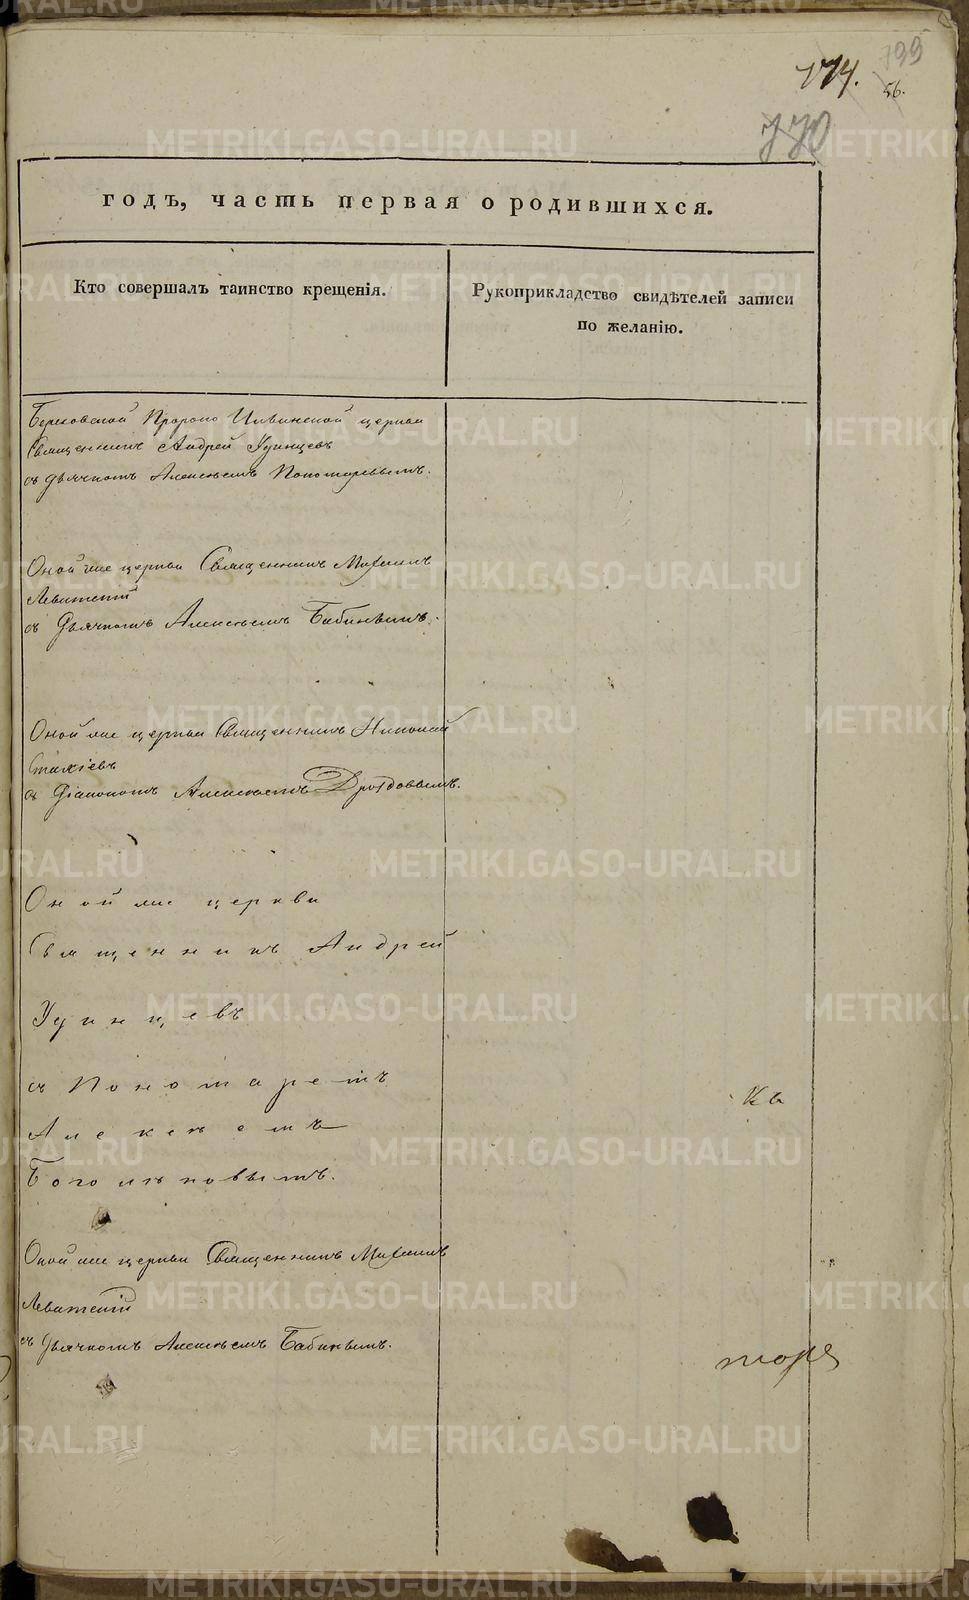 199
174.
56.
770
годъ, часть первая о родившихся.
Кто совершалъ таинство крещенія.
Рукоприкладство свидѣтелей записи
по желанію.
Пророко Ильинской церкви
Священникъ Андрей Удинцевъ
съ дьячкомъ Алексѣемъ Пономаревымъ.
Оной же церкви Священникъ Михаилъ
Левитскій
съ Дьячкомъ Алексѣемъ Бабинымъ.
Оной же церкви Священникъ Николай
Стахіевъ
съ Діакономъ Алексѣемъ Дроздовымъ.
Оной же церкви
Священникъ Андрей
Удинцевъ
съ Пономаремъ
Алексѣемъ
Боголѣповымъ.
Оной же церкви Священникъ Михаилъ
Левитскій
съ Дьячкомъ Алексѣемъ Бабинымъ.
METRIKI.GASO-URAL.RU